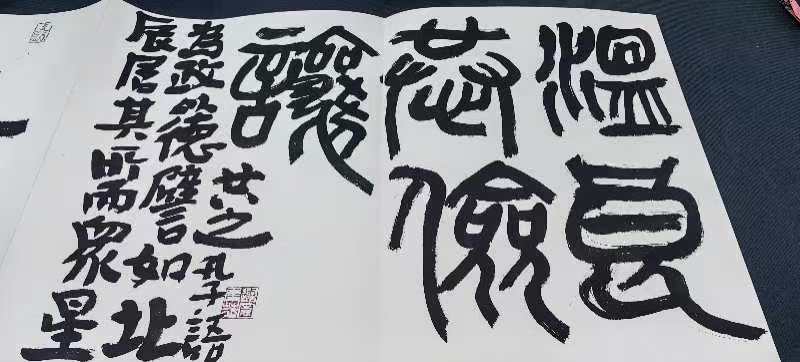 溫良
恭儉
讓
為政以德譬如北
辰居其所而眾星
共之
孔子語